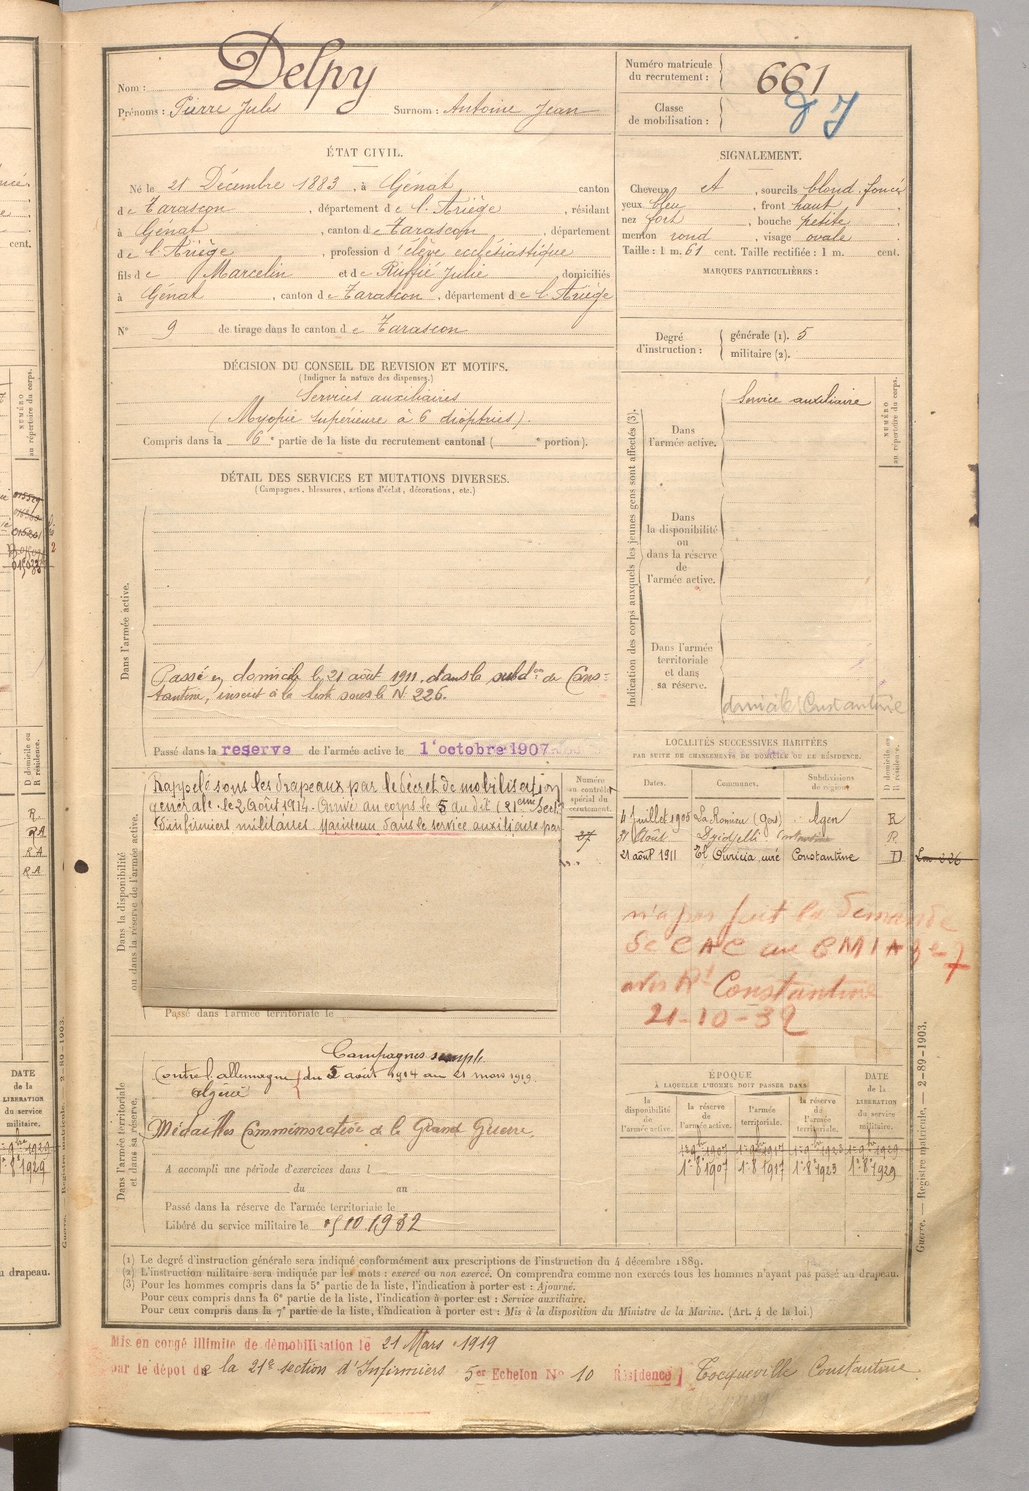 Nom : Delpy
Prénoms : Pierre Jules Surnom : Antoine Jean
Numéro matricule du recrutement : 661
Classe de mobilisation :
ÉTAT CIVIL.
Né le 21 Décembre 1883, à Génat, canton
de Tarascon, département de l'Ariège, résidant
à Génat, canton de Tarascon, département
de l'Ariège, profession d'élève ecclésiastique
fils de Marcelin et de Ruffié Julie, domiciliés
à Génat, canton de Tarascon, département de l'Ariège
N° 9 de tirage dans le canton de Tarascon
SIGNALEMENT.
Cheveux et, sourcils blond foncé
yeux bleu, front haut,
nez fort, bouche petite,
menton rond, visage ovale.
Taille : 1 m. 61 cent. Taille rectifiée : 1 m. cent.
MARQUES PARTICULIÈRES :
Degré d'instruction : générale (1). 5
militaire (2).
DÉCISION DU CONSEIL DE REVISION ET MOTIFS.
(Indiquer la nature des dispenses.)
Services auxiliaires
(Myopie supérieure à 6 dioptries).
Compris dans la 6e partie de la liste du recrutement cantonal ( e portion).
DÉTAIL DES SERVICES ET MUTATIONS DIVERSES.
(Campagnes, blessures, actions d'éclat, décorations, etc.)
Dans l'armée active.
Passé en domicile le 21 août 1911, dans la subdon de Cons-
tantine, inscrit à la liste sous le N° 226.
Passé dans la reserve de l'armée active le 1er octobre 1907
Indication des corps auxquels les jeunes gens sont affectés (3).
Dans l'armée active.
Service auxiliaire
NUMÉRO au répertoire du corps.
Dans la disponibilité ou dans la réserve de l'armée active.
Dans l'armée territoriale et dans sa réserve.
domicile Constantine
Dans la disponibilité ou dans la réserve de l'armée active.
Rappelé sous les drapeaux par le décret de mobilisation
générale du 2 Août 1914. Arrivé au corps le 5 au dit (21eme Secti
d'infirmiers militaires. Maintenu dans le service auxiliaire par
Numéro au contrôle spécial du recrutement.
27
Passé dans l'armée territoriale le
LOCALITÉS SUCCESSIVES HABITÉES
PAR SUITE DE CHANGEMENTS DE DOMICILE OU DE RÉSIDENCE.
Dates. Communes. Subdivisions de région. D domicile ou R résidence.
4 juillet 1905 La Romieu (Gers) Agen R
31 Août Djidjelli R
21 août 1911 El Ouricia, curé Constantine D
n'a pas fait la demande
de CAC au
Rt Constantine
21-10-32
Dans l'armée territoriale et dans sa réserve.
Campagnes simple
Contre l'allemagne { du 5 août 1914 au 21 mars 1919.
algérie
Médailles Commémorative de la Grand Guerre.
A accompli une période d'exercices dans l
du au
Passé dans la réserve de l'armée territoriale le
Libéré du service militaire le 15 10.1932
ÉPOQUE
À LAQUELLE L'HOMME DOIT PASSER DANS
la disponibilité de l'armée active. la réserve de l'armée active. l'armée territoriale. la réserve de l'armée territoriale. DATE de la LIBÉRATION du service militaire.
1er 8bre 1907 1er 8bre 1917 1er 8bre 1923 1er 8bre 1929
(1) Le degré d'instruction générale sera indiqué conformément aux prescriptions de l'instruction du 4 décembre 1889.
(2) L'instruction militaire sera indiquée par les mots : exercé ou non exercé. On comprendra comme non exercés tous les hommes n'ayant pas passé au drapeau.
(3) Pour les hommes compris dans la 5e partie de la liste, l'indication à porter est : Ajourné.
Pour ceux compris dans la 6e partie de la liste, l'indication à porter est : Service auxiliaire.
Pour ceux compris dans la 7e partie de la liste, l'indication à porter est : Mis à la disposition du Ministre de la Marine. (Art. 4 de la loi.)
Guerre. — Registre matricule. — 2-89-1903.
Mis en congé illimité de démobilisation le 21 Mars 1919
par le dépot de la 21e section d'Infirmiers 5er Echelon N° 10 Résidence Tocqueville Constantine